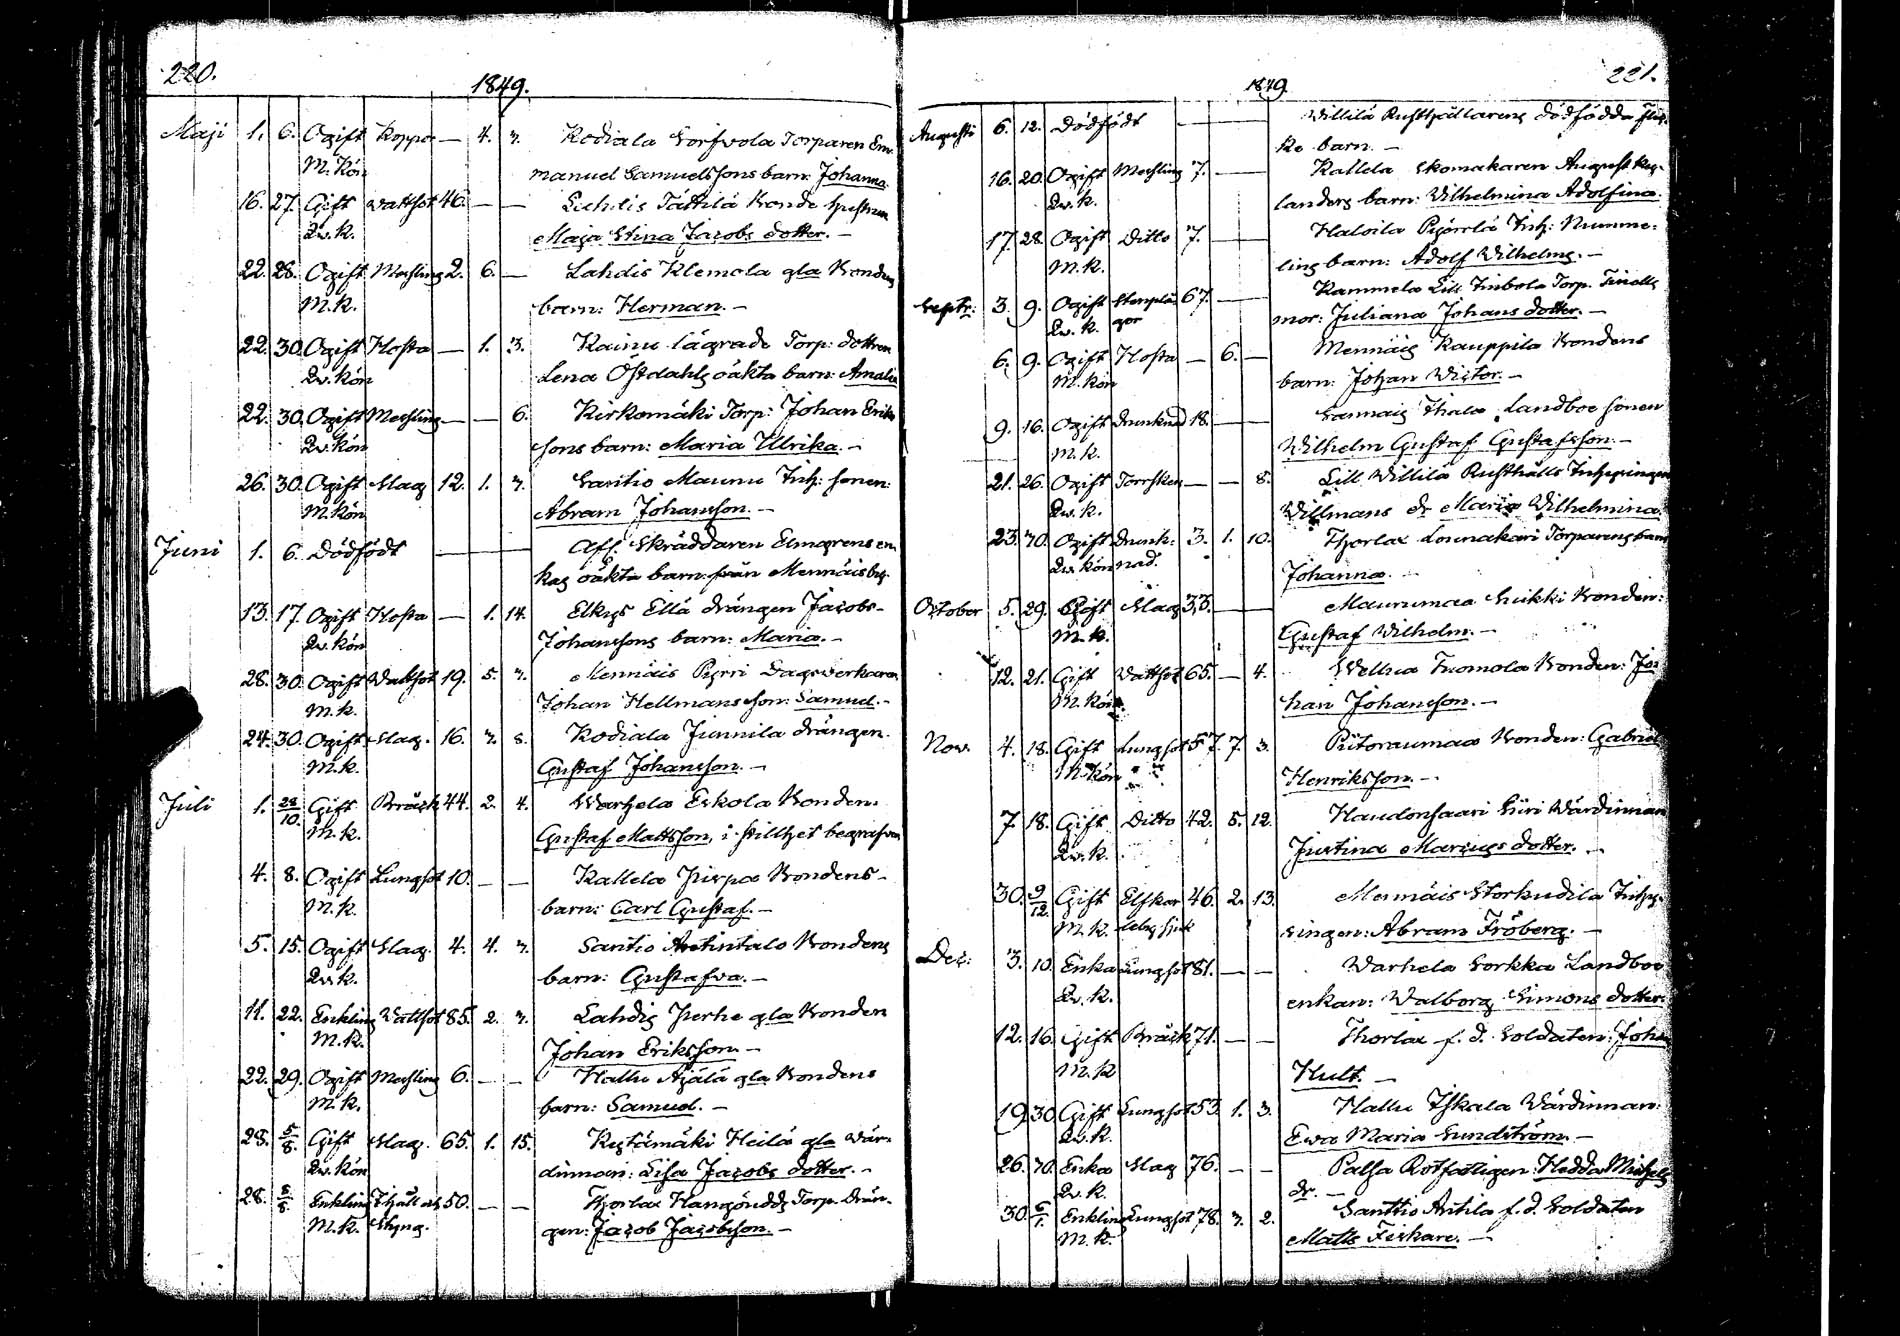 220.
1849.
Maji 1. 6. Ogift Koppor — 4. 7. Kodiala Sorfvola Torparen Em-
M. Kön manuel Samuelssons barn: Johanna.
16. 27. Gift Wattsot 46. — — Lahdis Tättilä Bonde hustrun
Qv. k. Maja Stina Jacobs dotter. —
22. 28. Ogift Messling 2. 6. — Lahdis Klemola gla Bondens
M. k. barn: Herman. —
22. 30. Ogift Hosta — 1. 3. Kainu lägrade Torp: dottren
Qv. Kön Lena Östdahls oäkta barn: Amalia
22. 30. Ogift Messling — — 6. Kirkomäki Torp: Johan Eriks
Qv. Kön sons barn: Maria Ulrika. —
26. 30. Ogift Slag 12. 1. 7. Santio Maunu Inh: sonen:
M. Kön Abram Johansson. —
Juni 1. 6. Dödfödt — Afl. Skräddaren Elmgrens en-
kas oäkta barn från Mennäisby.
13. 17. Ogift Hosta — 1. 14. Elkys Ellä drängen Jacobs-
Qv. Kön Johanssons barn: Maria. —
28. 30. Ogift Wattsot 19. 5. 7. Mennäis Pyrri Dagsverkaren
M. k. Johan Hellmans son: Samuel. —
24. 30. Ogift Slag. 16. 7. 8. Kodiala Junnila drängen
M. k. Gustaf Johansson. —
Juli 1. 28/10. Gift Bräck 44. 2. 4. Warhela Eskola Bonden:
M. k. Gustaf Mattsson, i stillhet begrafven
4. 8. Ogift Lungsot 10. — — Kallela Pirpa Bondens
M. k. barn: Carl Gustaf. —
5. 15. Ogift Slag. 4. 4. 7. Santio Anttintalo Bondens
Qv. k. barn: Gustafva. —
11. 22. Enkling Wattsot 85. 2. 7. Lahdis Perhe gla Bonden
M. k. Johan Eriksson. —
22. 29. Ogift Messling 6. — — Hallu Ajälä gla Bondens
M. k. barn: Samuel. —
28. 5/8. Gift Slag. 65. 1. 15. Kystämäki Heilä gla Wär-
Qv. Kön dinnan: Lisa Jacobs dotter. —
28. 5/8. Enkling 50. — — Thorlax Torp. Drän-
M. k. gen: Jacob Jacobsson. —
221.
1849.
Augusti 6. 12. Dödfödt — Willilä Rusthållarens dödfödda flic-
ke barn. —
16. 20. Ogift Messling 7. — Kallela Skomakaren August
Qv. k. landers barn: Wilhelmina Adolfina
17. 28. Ogift Ditto 7. — Haloila Pyörrlä Inh: Numme-
M. k. lins barn: Adolf Wilhelms. —
Septr: 3. 9. Ogift Stenplå- 67. — Kammela Lill Torp.
Qv. k. gor mor: Juliana Johans dotter. —
6. 9. Ogift Hosta — 6. — Mennäis Kauppila Bondens
M. Kön barn: Johan Victor. —
9. 16. Ogift Drunknad 18. — Sannais Ihala Landboe sonen
M. k. Wilhelm Gustaf Gustafsson. —
21. 26. Ogift Torrsken — — 8. Lill Willilä Rusthålls Inhysingen
Qv. k. Willmans dr Maria Wilhelmina.
23. 30. Ogift Drunk- 3. 1. 10. Thorlax Lounakari Torparens barn
Qv. kön nad. Johanna. —
October 5. 29. Ogift Slag 33. — Maurumaa Suikki Bonden:
M. k. Gustaf Wilhelm. —
12. 21. Gift Wattsot 65. — 4. Wellua Tuomola Bonden: Jo-
M. Kön han Johansson. —
Nov. 4. 18. Gift Lungsot 57. 7. 3. Riitoraumaa Bonden: Gabriel
M. Kön Henriksson. —
7. 18. Gift Ditto 42. 5. 12. Haudonsaari Siiri Wärdinnan
Qv. k. Justina Marcus dotter. —
30. 9/12. Gift 46. 2. 13. Mennäis Storkudila Inhy-
M. k. singen: Abram Fröberg. —
Dec: 3. 10. Enka Lungsot 81. — — Warhela Sorkka Landboe
Qv. k. enkan: Walborg Simons dotter.
12. 16. Gift Bräck 71. — — Thorlax f. d. Soldaten: Johan
M. k. Hult. —
19. 30. Gift Lungsot 53. 1. 3. Hallu Iskala Wärdinnan:
Qv. k. Ewa Maria Sundström. —
26. 30. Enka Slag 76. — — Palsa Rotfattigen Hedda Michels
Qv. k. dr. —
30. 6/1. Enkling Lungsot 78. 7. 2. Santtio Antila f. d. Soldaten
M. k. Matts Fiskare. —